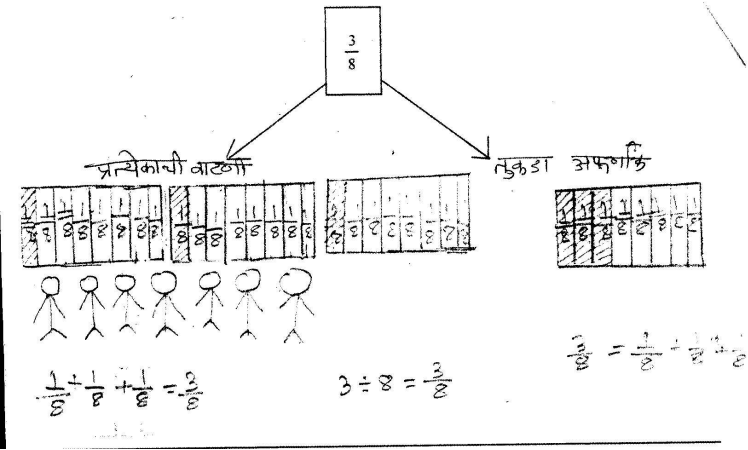 3/8
प्रत्येकाची वाटणी
तुकडा अपूर्णांक
1/8 1/8 1/8 1/8 1/8 1/8 1/8 1/8
1/8 1/8 1/8 1/8 1/8 1/8 1/8 1/8
1/8 1/8 1/8 1/8 1/8 1/8 1/8 1/8
1/8 + 1/8 + 1/8 = 3/8
3 ÷ 8 = 3/8
3/8 = 1/8 + 1/8 + 1/8